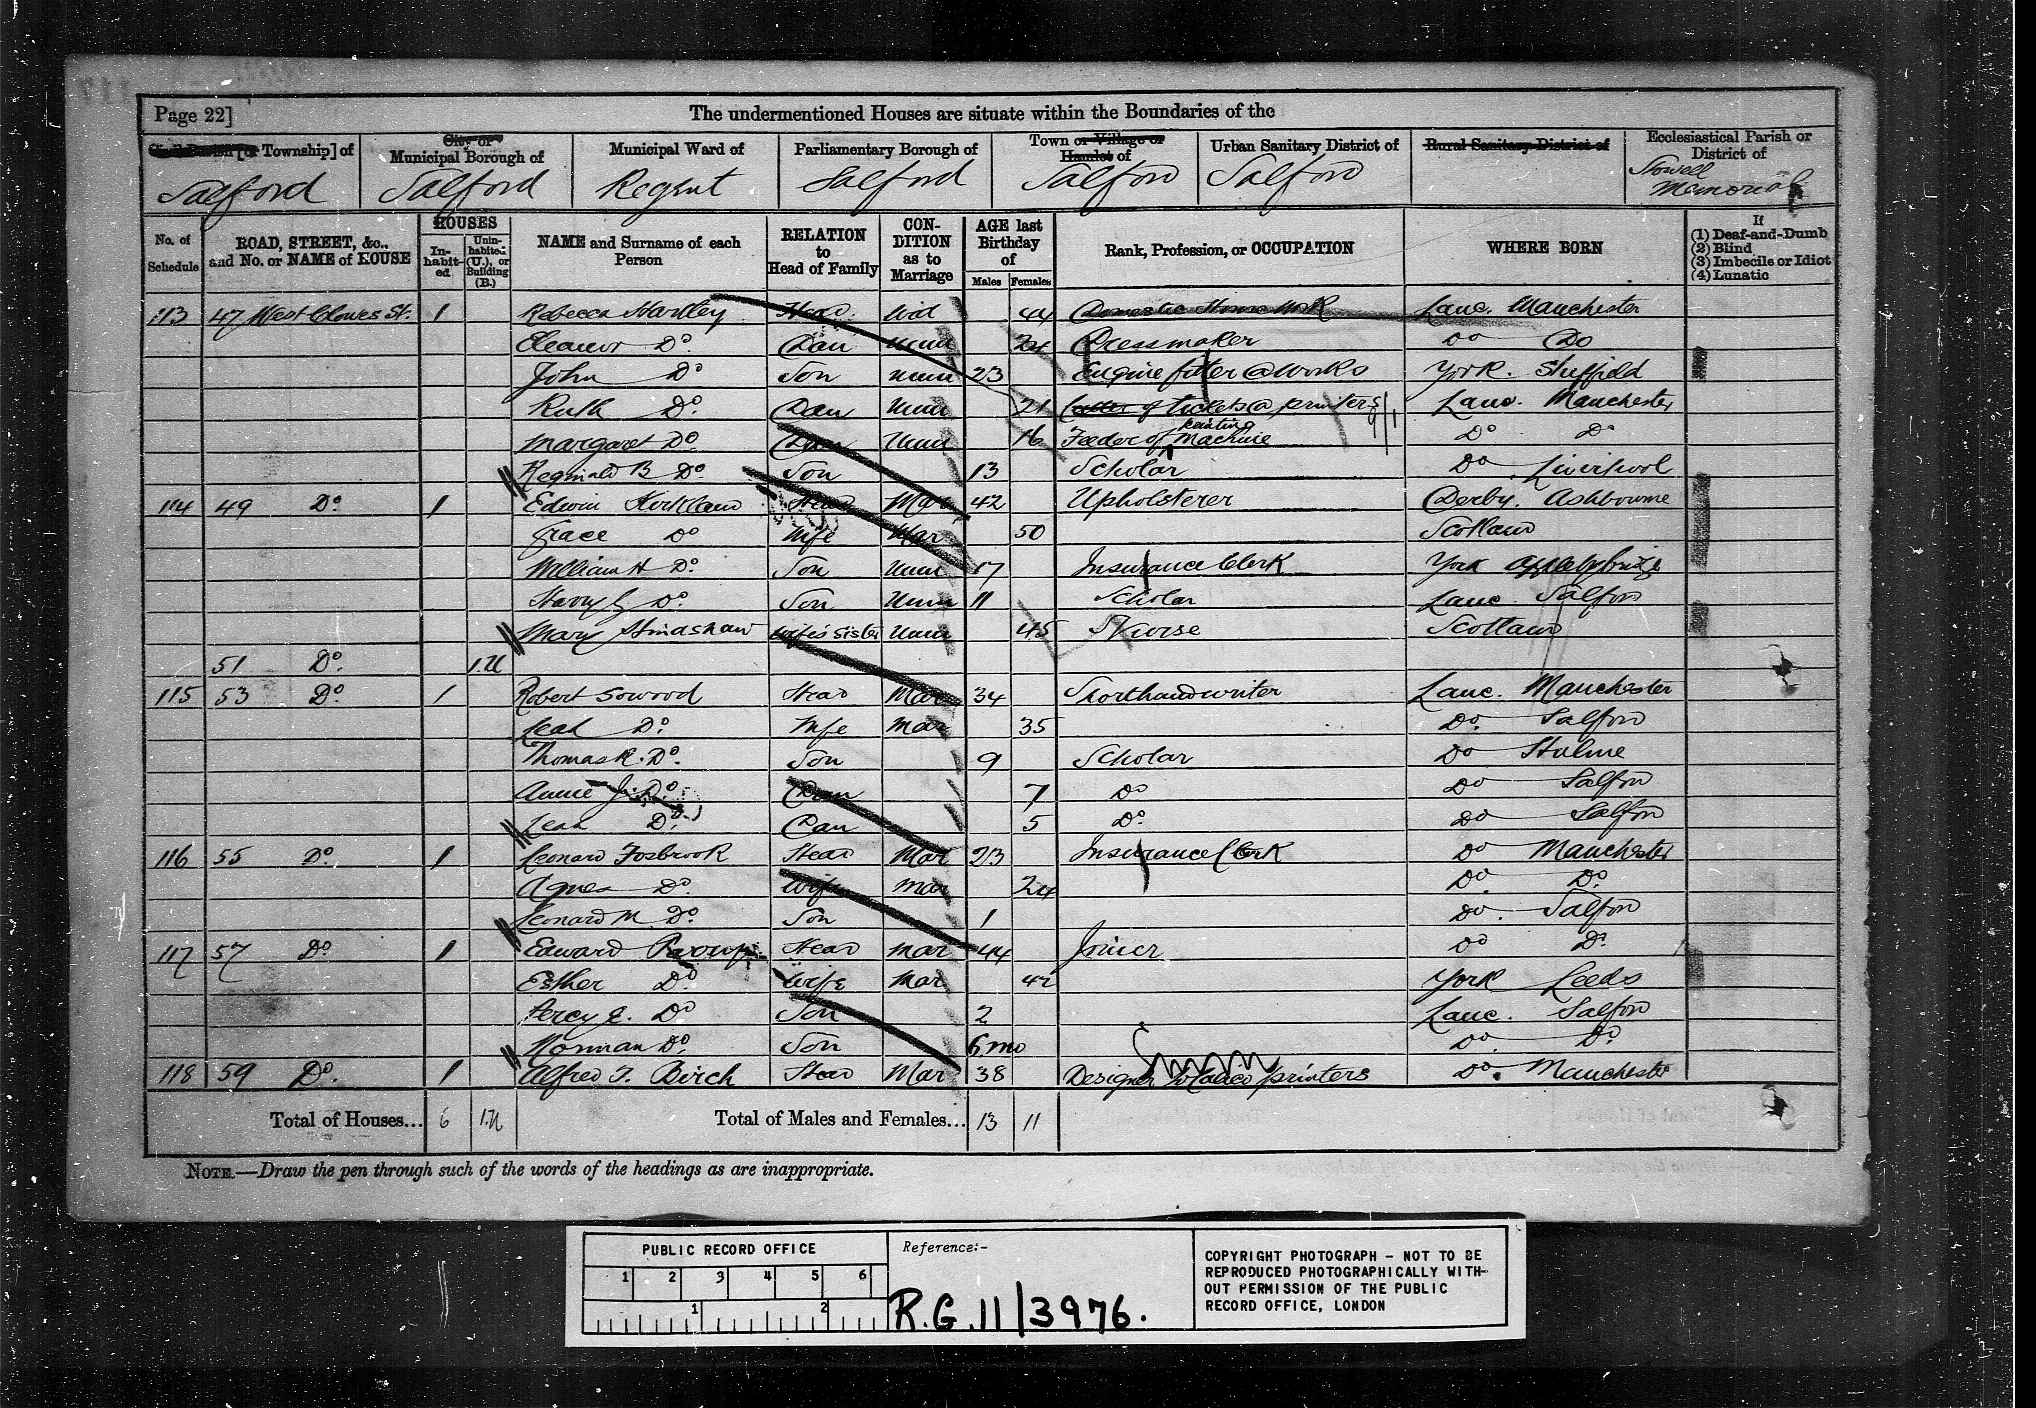 Page 22]
The undermentioned Houses are situate within the Boundaries of the
Civil Parish [or Township] of
City or Municipal Borough of
Municipal Ward of
Parliamentary Borough of
Town or Village or Hamlet of
Urban Sanitary District of
Rural Sanitary District of
Ecclesiastical Parish or District of
Salford Salford Regent Salford Salford Salford Stowell Memorial
No. of Schedule
ROAD, STREET, &c., and No. or NAME of HOUSE
HOUSES
In-habit-ed
Unin-habited (U.), or Building (B.)
NAME and Surname of each Person
RELATION to Head of Family
CON-DITION as to Marriage
AGE last Birthday of
Males Females
Rank, Profession, or OCCUPATION
WHERE BORN
If
(1) Deaf-and-Dumb
(2) Blind
(3) Imbecile or Idiot
(4) Lunatic
113 47 West Clowes St. 1 Rebecca Hartley Head Wid 44 Domestic Home Work Lanc. Manchester
Eleanor Do Dau Unm 24 Dressmaker Do Do
John Do Son Unm 23 Engine fitter @ Works York. Sheffield
Ruth Do Dau Unm 21 Cutter of tickets @ printers Lanc. Manchester
Margaret Do Dau Unm 16 Feeder of printing Machine Do Do
Reginald B Do Son 13 Scholar Do Liverpool
114 49 Do 1 Edwin Kirkland Head Mar 42 Upholsterer Derby. Ashbourne
Grace Do Wife Mar 50 Scotland
William H Do Son Unm 17 Insurance Clerk York
Harry G Do Son Unm 11 Scholar Lanc Salford
Mary Hindshaw Wife's Sister Unm 45 Nurse Scotland
51 Do 1.U
115 53 Do 1 Robert Sowood Head Mar 34 Shorthand writer Lanc. Manchester
Leah Do Wife Mar 35 Do Salford
Thomas R. Do Son 9 Scholar Do Hulme
Annie J. Do Dau 7 Do Do Salford
Leah Do Dau 5 Do Do Salford
116 55 Do 1 Leonard Fosbrook Head Mar 23 Insurance Clerk Do Manchester
Agnes Do Wife Mar 24 Do Do
Leonard M Do Son 1 Do Salford
117 57 Do 1 Edward Head Mar 44 Joiner Do Do
Esther Do Wife Mar 42 York Leeds
Percy E. Do Son 2 Lanc. Salford
Norman Do Son 6 mo Do Do
118 59 Do 1 Alfred T. Birch Head Mar 38 Designer to Calico printers Do Manchester
Total of Houses... 6 1.U Total of Males and Females... 13 11
NOTE.—Draw the pen through such of the words of the headings as are inappropriate.
PUBLIC RECORD OFFICE
1 2 3 4 5 6
1 2
Reference:-
R.G. 11/3976.
COPYRIGHT PHOTOGRAPH - NOT TO BE
REPRODUCED PHOTOGRAPHICALLY WITH-
OUT PERMISSION OF THE PUBLIC
RECORD OFFICE, LONDON